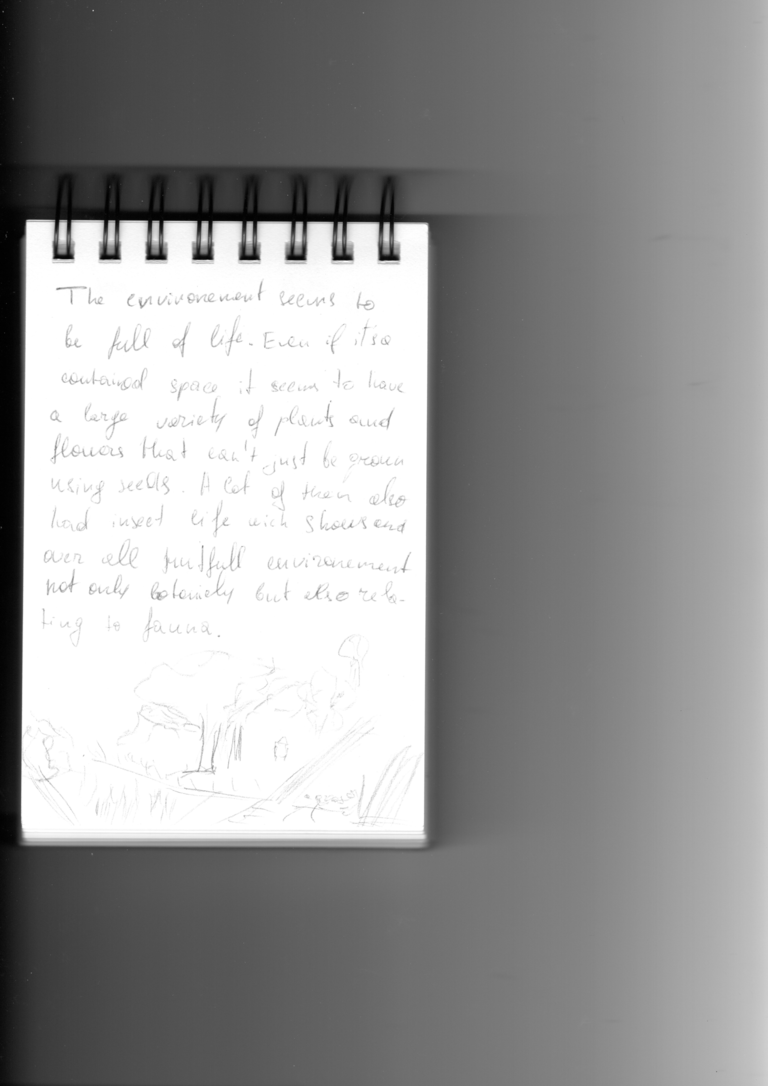 The environement seems to
be full of life. Even if it's a
contained space it seems to have
a large variety of plants and
flowers that can't just be grown
using seeds. A lot of them also
had insect life wich shows and
over all fruitfull environement
not only botanicly but also rela-
ting to fauna.